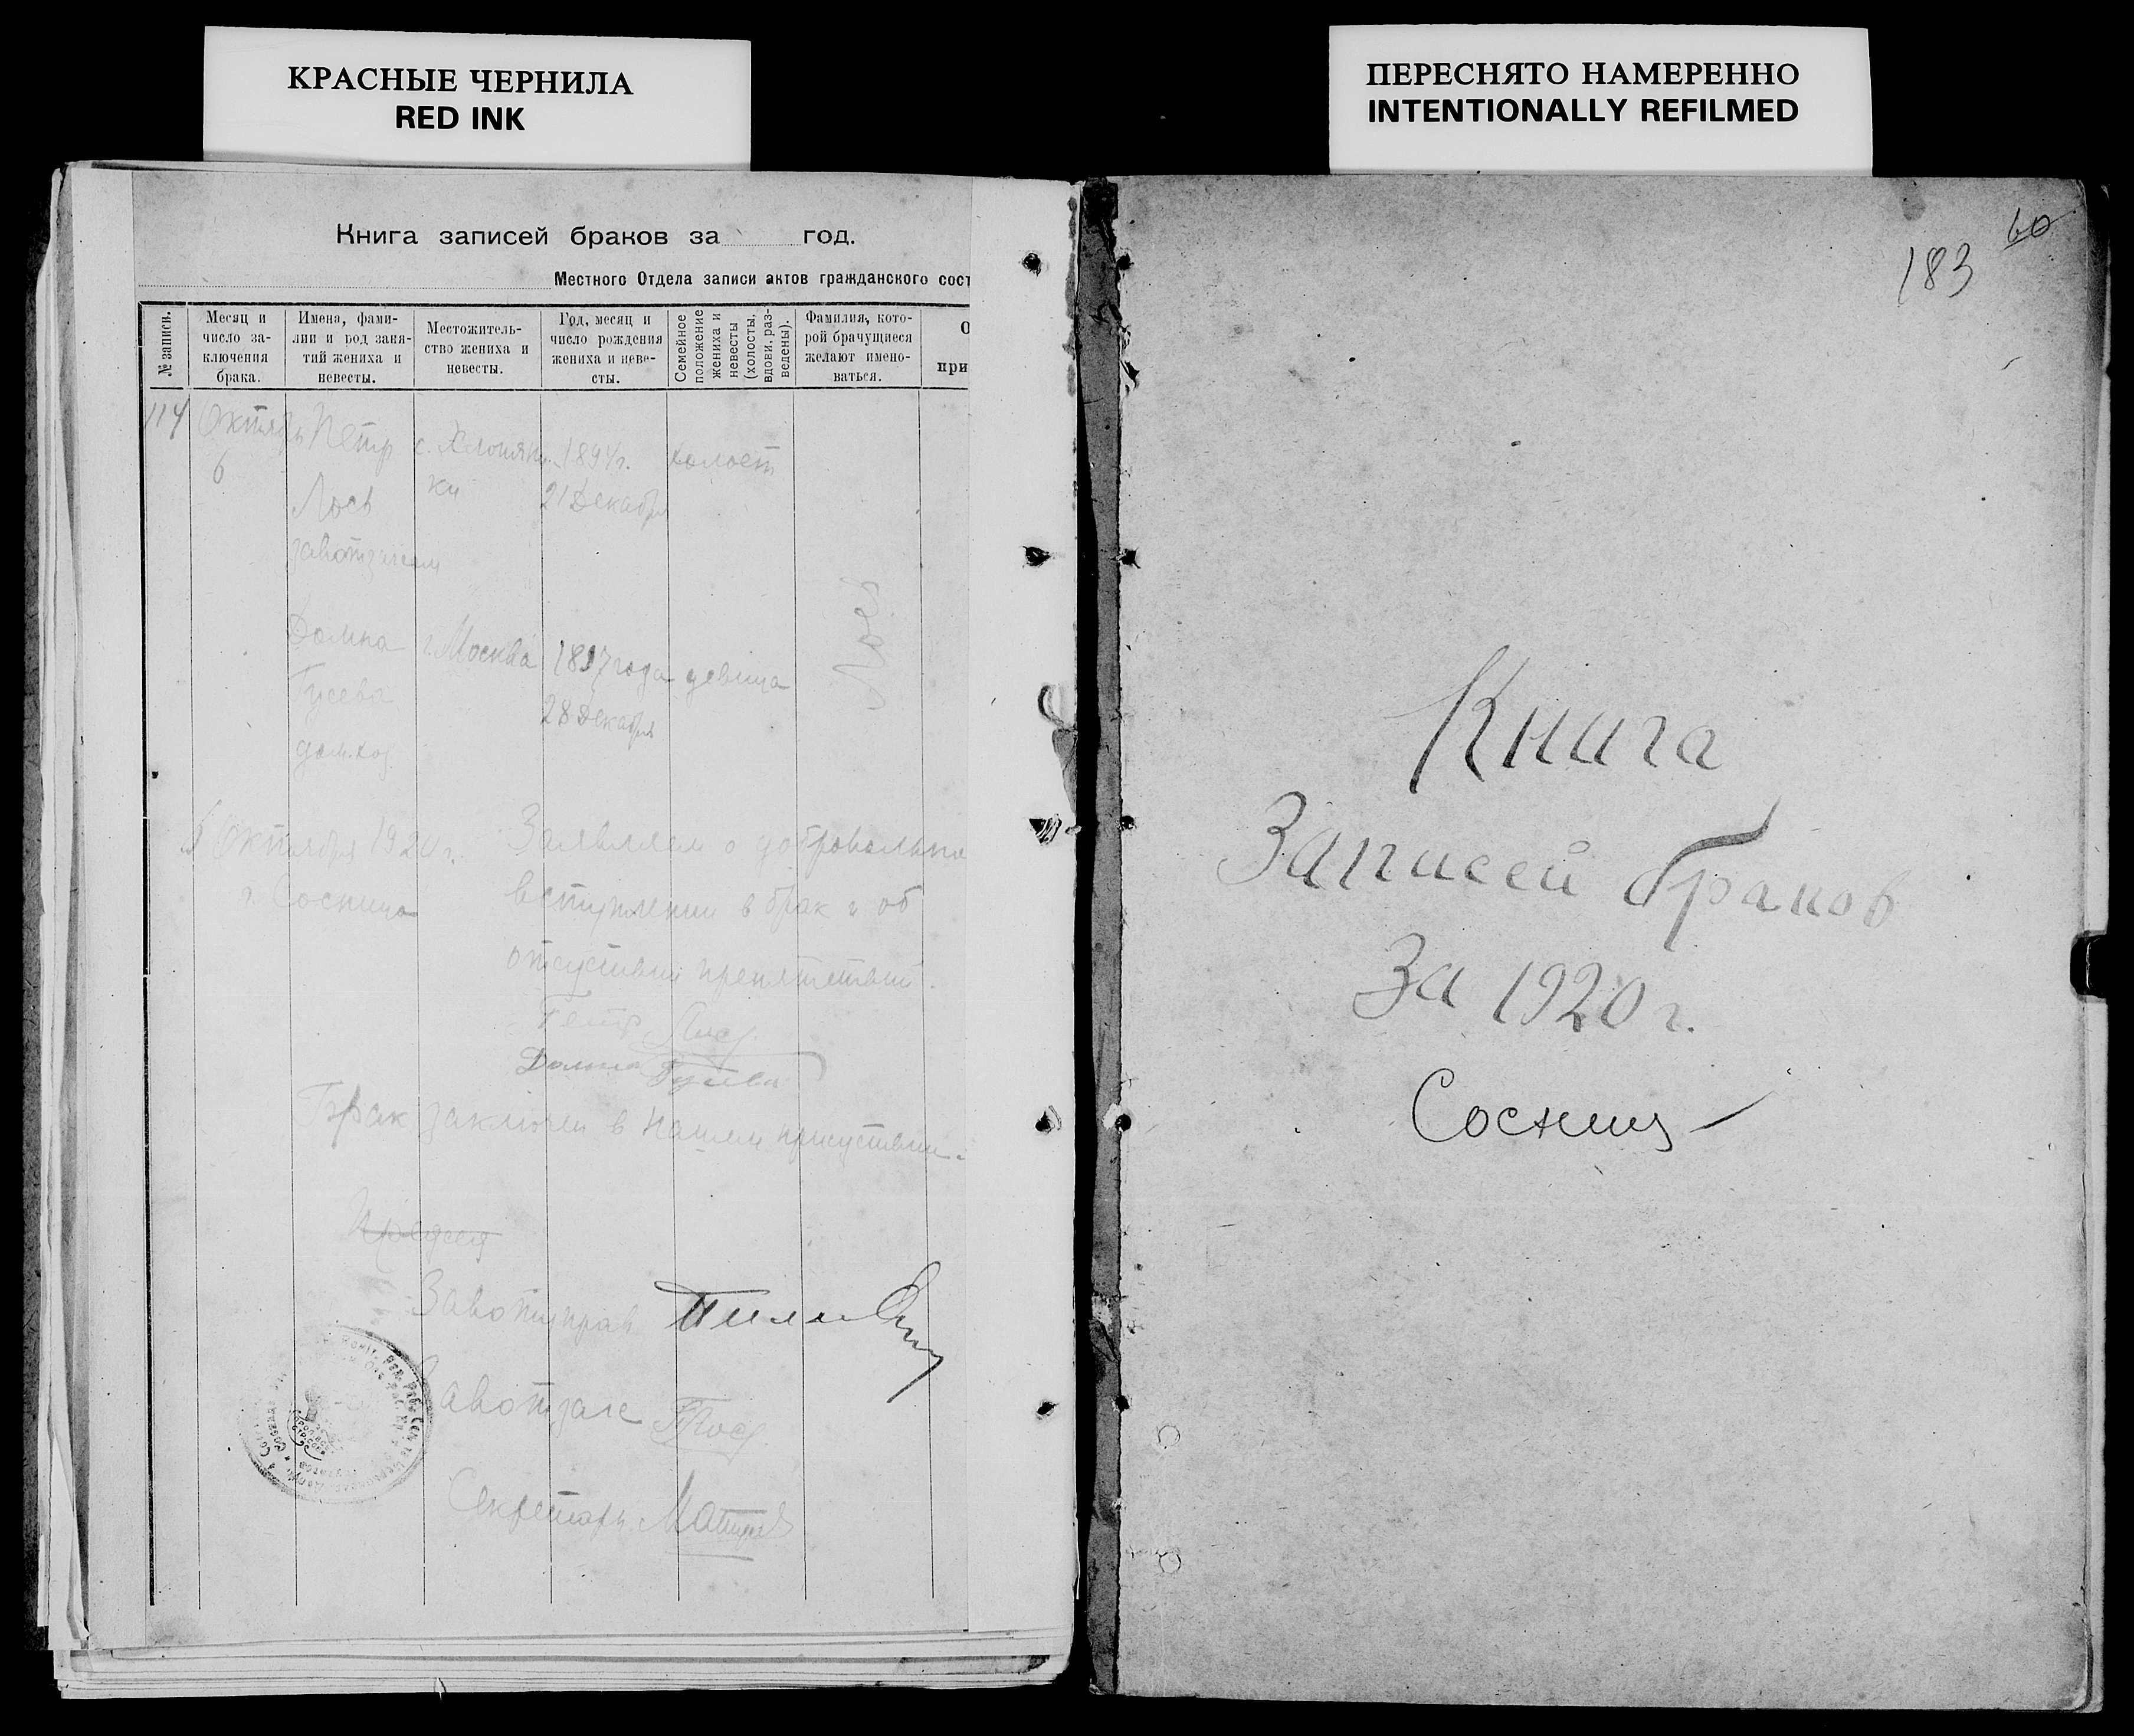 КРАСНЫЕ ЧЕРНИЛА
RED INK
Книга записей браков за год.
Местного Отдела записи актов гражданского сост
№ записи.
Месяц и
число за-
ключения
брака.
Имена, фами-
лии и род заня-
тий жениха и
невесты.
Местожитель-
ство жениха и
невесты.
Год, месяц и
число рождения
жениха и неве-
сты.
Семейное
положение
жениха и
невесты
(холосты,
вдовы, раз-
ведены).
Фамилия, кото-
рой брачущиеся
желают имено-
ваться.
О
при
114
Октябрь
6
Петр
Лось
с.
ки
21 Декабря
холост
Домна
Гусева
дом.хоз.
г. Москва
28 Декабря
девица
Лось
Октября 1920 г.
г. Сосница
Заявляем о добровольно
вступлении в брак и об
отсутствии препятствий.
Петр Лось
Домна Гусева
Брак заключен в нашем присутствии.
Завотуправ
Секретарь
ПЕРЕСНЯТО НАМЕРЕННО
INTENTIONALLY REFILMED
60
183
Книга
Записей браков
За 1920 г.
Сосниц